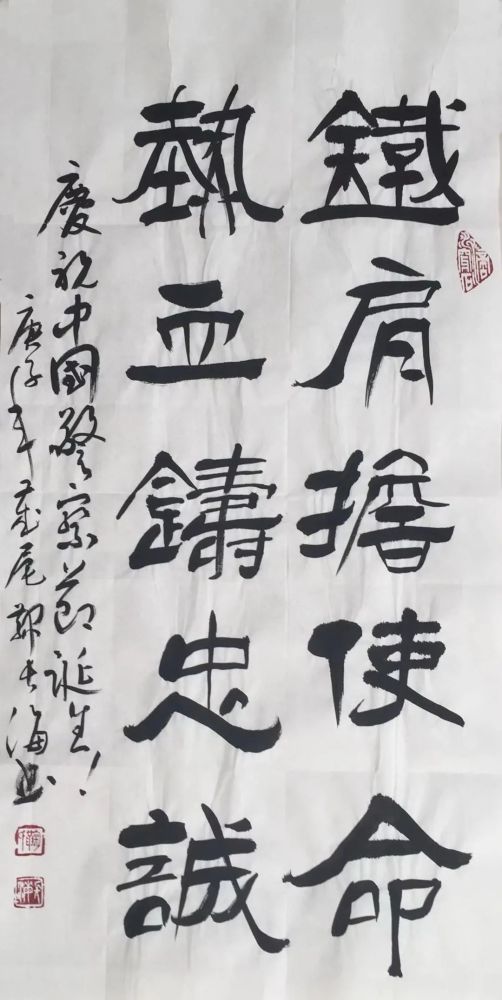 鐵肩擔使命
熱血鑄忠誠
慶祝中國警察節誕生！
庚子年歲尾郭長海书